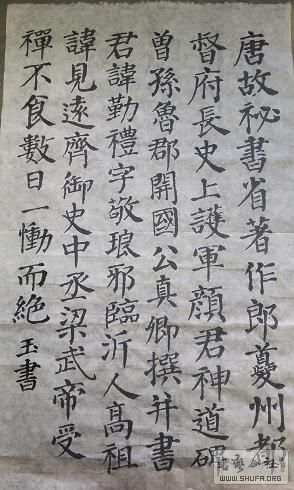 唐故秘書省著作郎夔州都
督府長史上護軍顏君神道碑
曾孫魯郡開國公真卿撰并書
君諱勤禮字敬琅邪臨沂人高祖
諱見遠齊御史中丞梁武帝受
禪不食數日一慟而絕 玉書
WWW.SHUFA.ORG